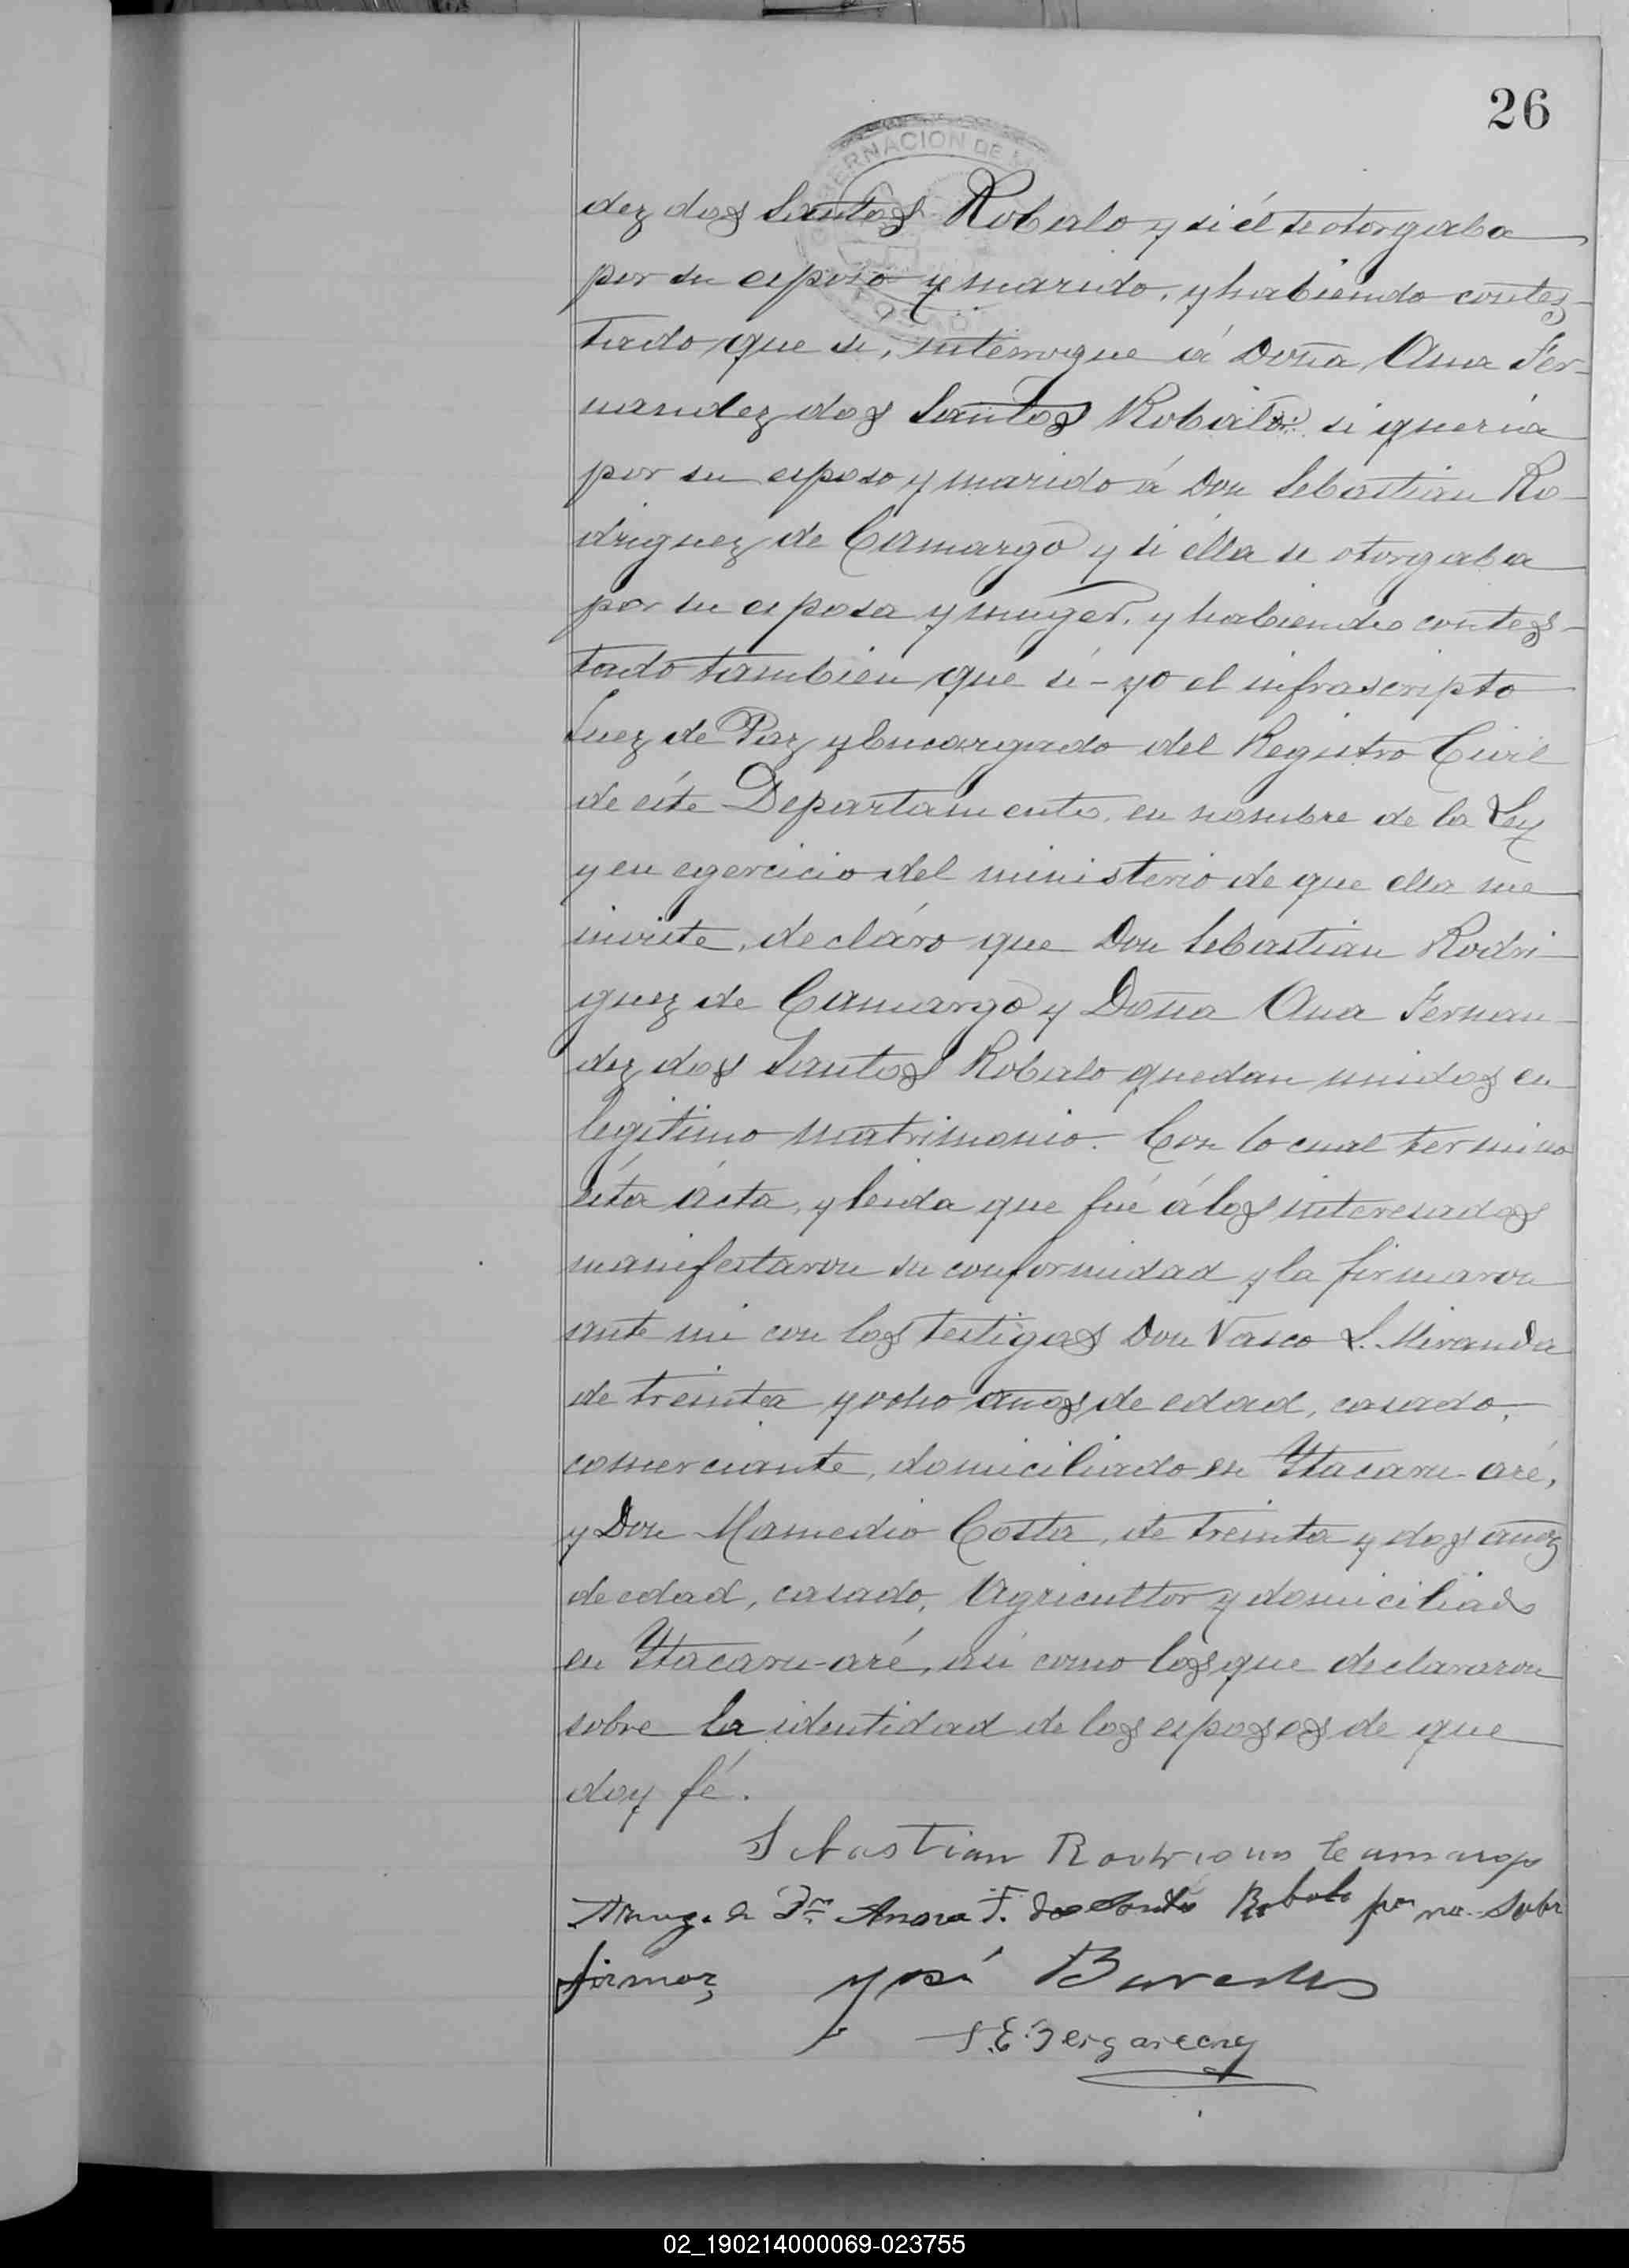 26
GOBERNACION DE
dez dos Santos Robalo y si él se otorgaba
por su esposo y marido, y habiendo contes-
tado que si, interrogue á Doña Ana Fer-
nandez dos Santos Robalo si queria
por su esposo y marido á Don Sebastian Ro-
driguez de Camargo y si élla se otorgaba
por su esposa y muger, y habiendo contes-
tado tambien que si - yo el infrascripto
Juez de Paz y Encargado del Registro Civil
de éste Departamento, en nombre de la Ley
y en egercicio del ministerio de que ella me
inviste, decláro que Don Sebastian Rodri-
guez de Camargo y Doña Ana Fernan-
dez dos Santos Robalo quedan unidos en
legitimo matrimonio. Con lo cual termino
ésta ácta, y leida que fué á los interesados
manifestaron su conformidad y la firmaron
ante mi con los testigos Don Vasco L. Miranda
de treinta y ocho años de edad, casado,
comerciante, domiciliado en Ytacaru-aré,
y Don Mamedio Costa, de treinta y dos años
de edad, casado, Agricultor y domiciliado
en Ytacaru-aré, asi como los que declararon
sobre la identidad de los esposos de que
doy fé.
Sebastian Rodrigues Camargo
Arruego de Dña Anna F. dos Santos Robalo por no saber
firmar
02_190214000069-023755